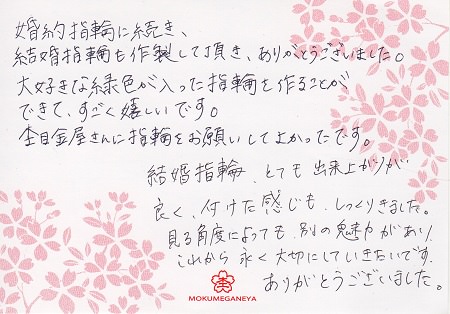 婚約指輪に続き、
結婚指輪も作製して頂き、ありがとうございました。
大好きな緑色が入った指輪を作ることが
できて、すごく嬉しいです。
杢目金屋さんに指輪をお願いしてよかったです。
結婚指輪、とても出来上がりが
良く、付けた感じも、しっくりきました。
見る角度によっても、別の魅力があり
これから永く大切にしていきたいです。
ありがとうございました。
MOKUMEGANEYA